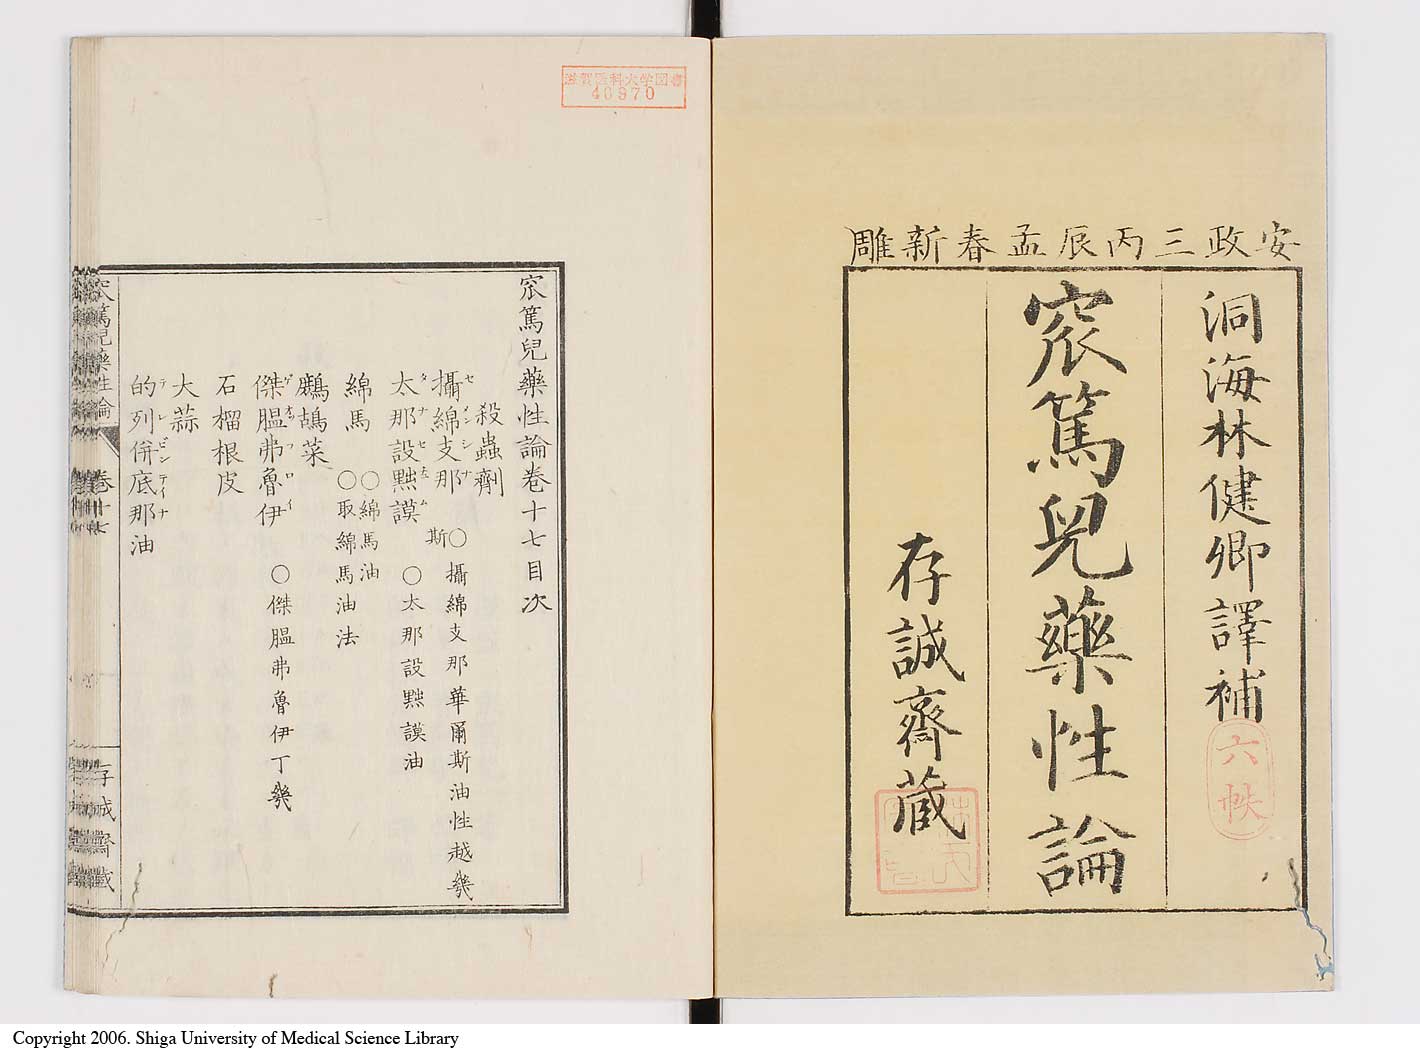 安政三丙辰孟春新雕
洞海林健卿譯補
六帙
窊篤兒藥性論
存誠齋蔵
滋賀医科大学図書
40970
窊篤兒藥性論卷十七目次
殺蟲劑
攝綿支那 ○攝綿支那華爾斯油性越幾斯
セメンシナ
太那設㸃謨 ○太那設㸃謨油
タナセチュム
綿馬 ○綿馬油 ○取綿馬油法
鷓鴣菜
傑膃弗魯伊 ○傑膃弗魯伊丁幾
ゲオフロイ
石榴根皮
大蒜
的列併底那油
テレビンテイナ
窊篤兒藥性論 卷十七
存誠齋蔵
Copyright 2006. Shiga University of Medical Science Library